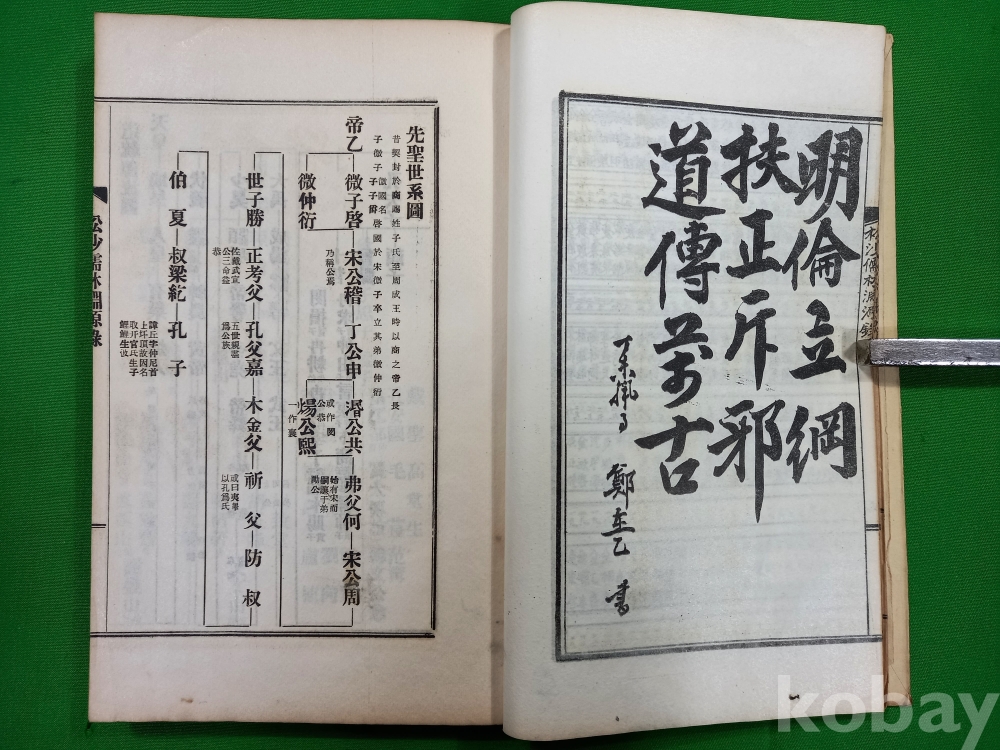 明倫立綱
扶正斥邪
道傳萬古
鄭
書
先聖世系圖
昔契封於商賜姓子氏至周成王時以商之帝乙長
子微子啓國於宋微子卒立其弟微仲衍
微國名
子子爵
帝乙 微子啓 宋公稽 丁公申 湣公共 弗父何 宋公周
或作閔
公恭
始有宋而
嗣讓于弟
勵公
微仲衍
乃稱公焉
煬公熙
一作襄
世子勝 正考父 孔父嘉 木金父 祈父 防叔
佐戴武宣
公三命益
恭
五世親盡
爲公族
或曰夷睪
以孔爲氏
伯夏 叔梁紇 孔子
諱丘字仲尼首
上圩頂故因名
取幵官氏生子
鯉鯉生伋
松沙儒林淵源錄
松沙儒林淵源錄
kobay